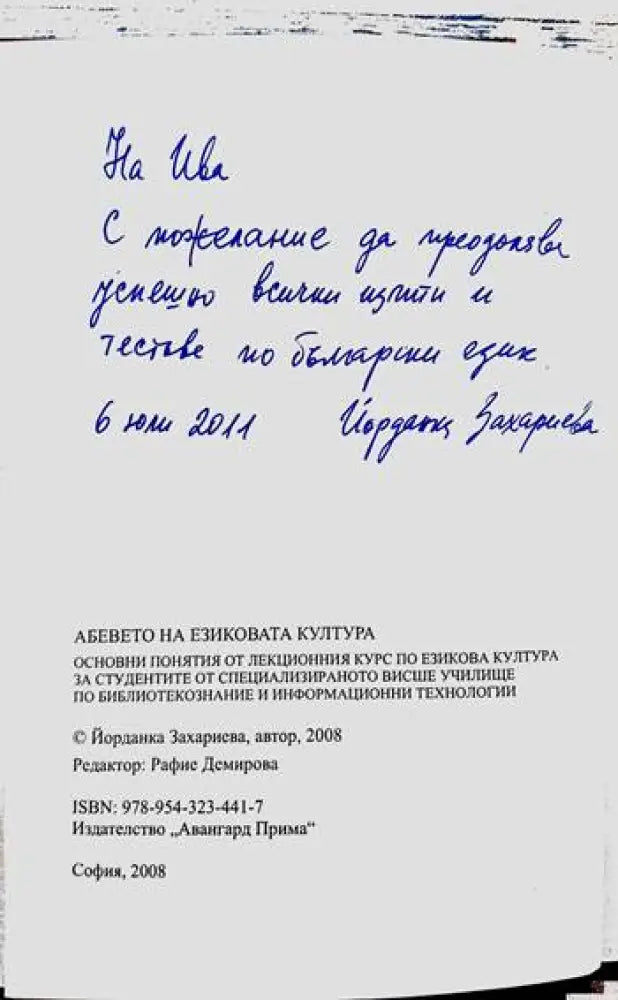 На Ива
С пожелание да преодолява
успешно всички изпити и
тестове по български език
6 юли 2011 Йорданка Захариева
АБЕВЕТО НА ЕЗИКОВАТА КУЛТУРА
ОСНОВНИ ПОНЯТИЯ ОТ ЛЕКЦИОННИЯ КУРС ПО ЕЗИКОВА КУЛТУРА
ЗА СТУДЕНТИТЕ ОТ СПЕЦИАЛИЗИРАНОТО ВИСШЕ УЧИЛИЩЕ
ПО БИБЛИОТЕКОЗНАНИЕ И ИНФОРМАЦИОННИ ТЕХНОЛОГИИ
© Йорданка Захариева, автор, 2008
Редактор: Рафие Демирова
ISBN: 978-954-323-441-7
Издателство „Авангард Прима“
София, 2008